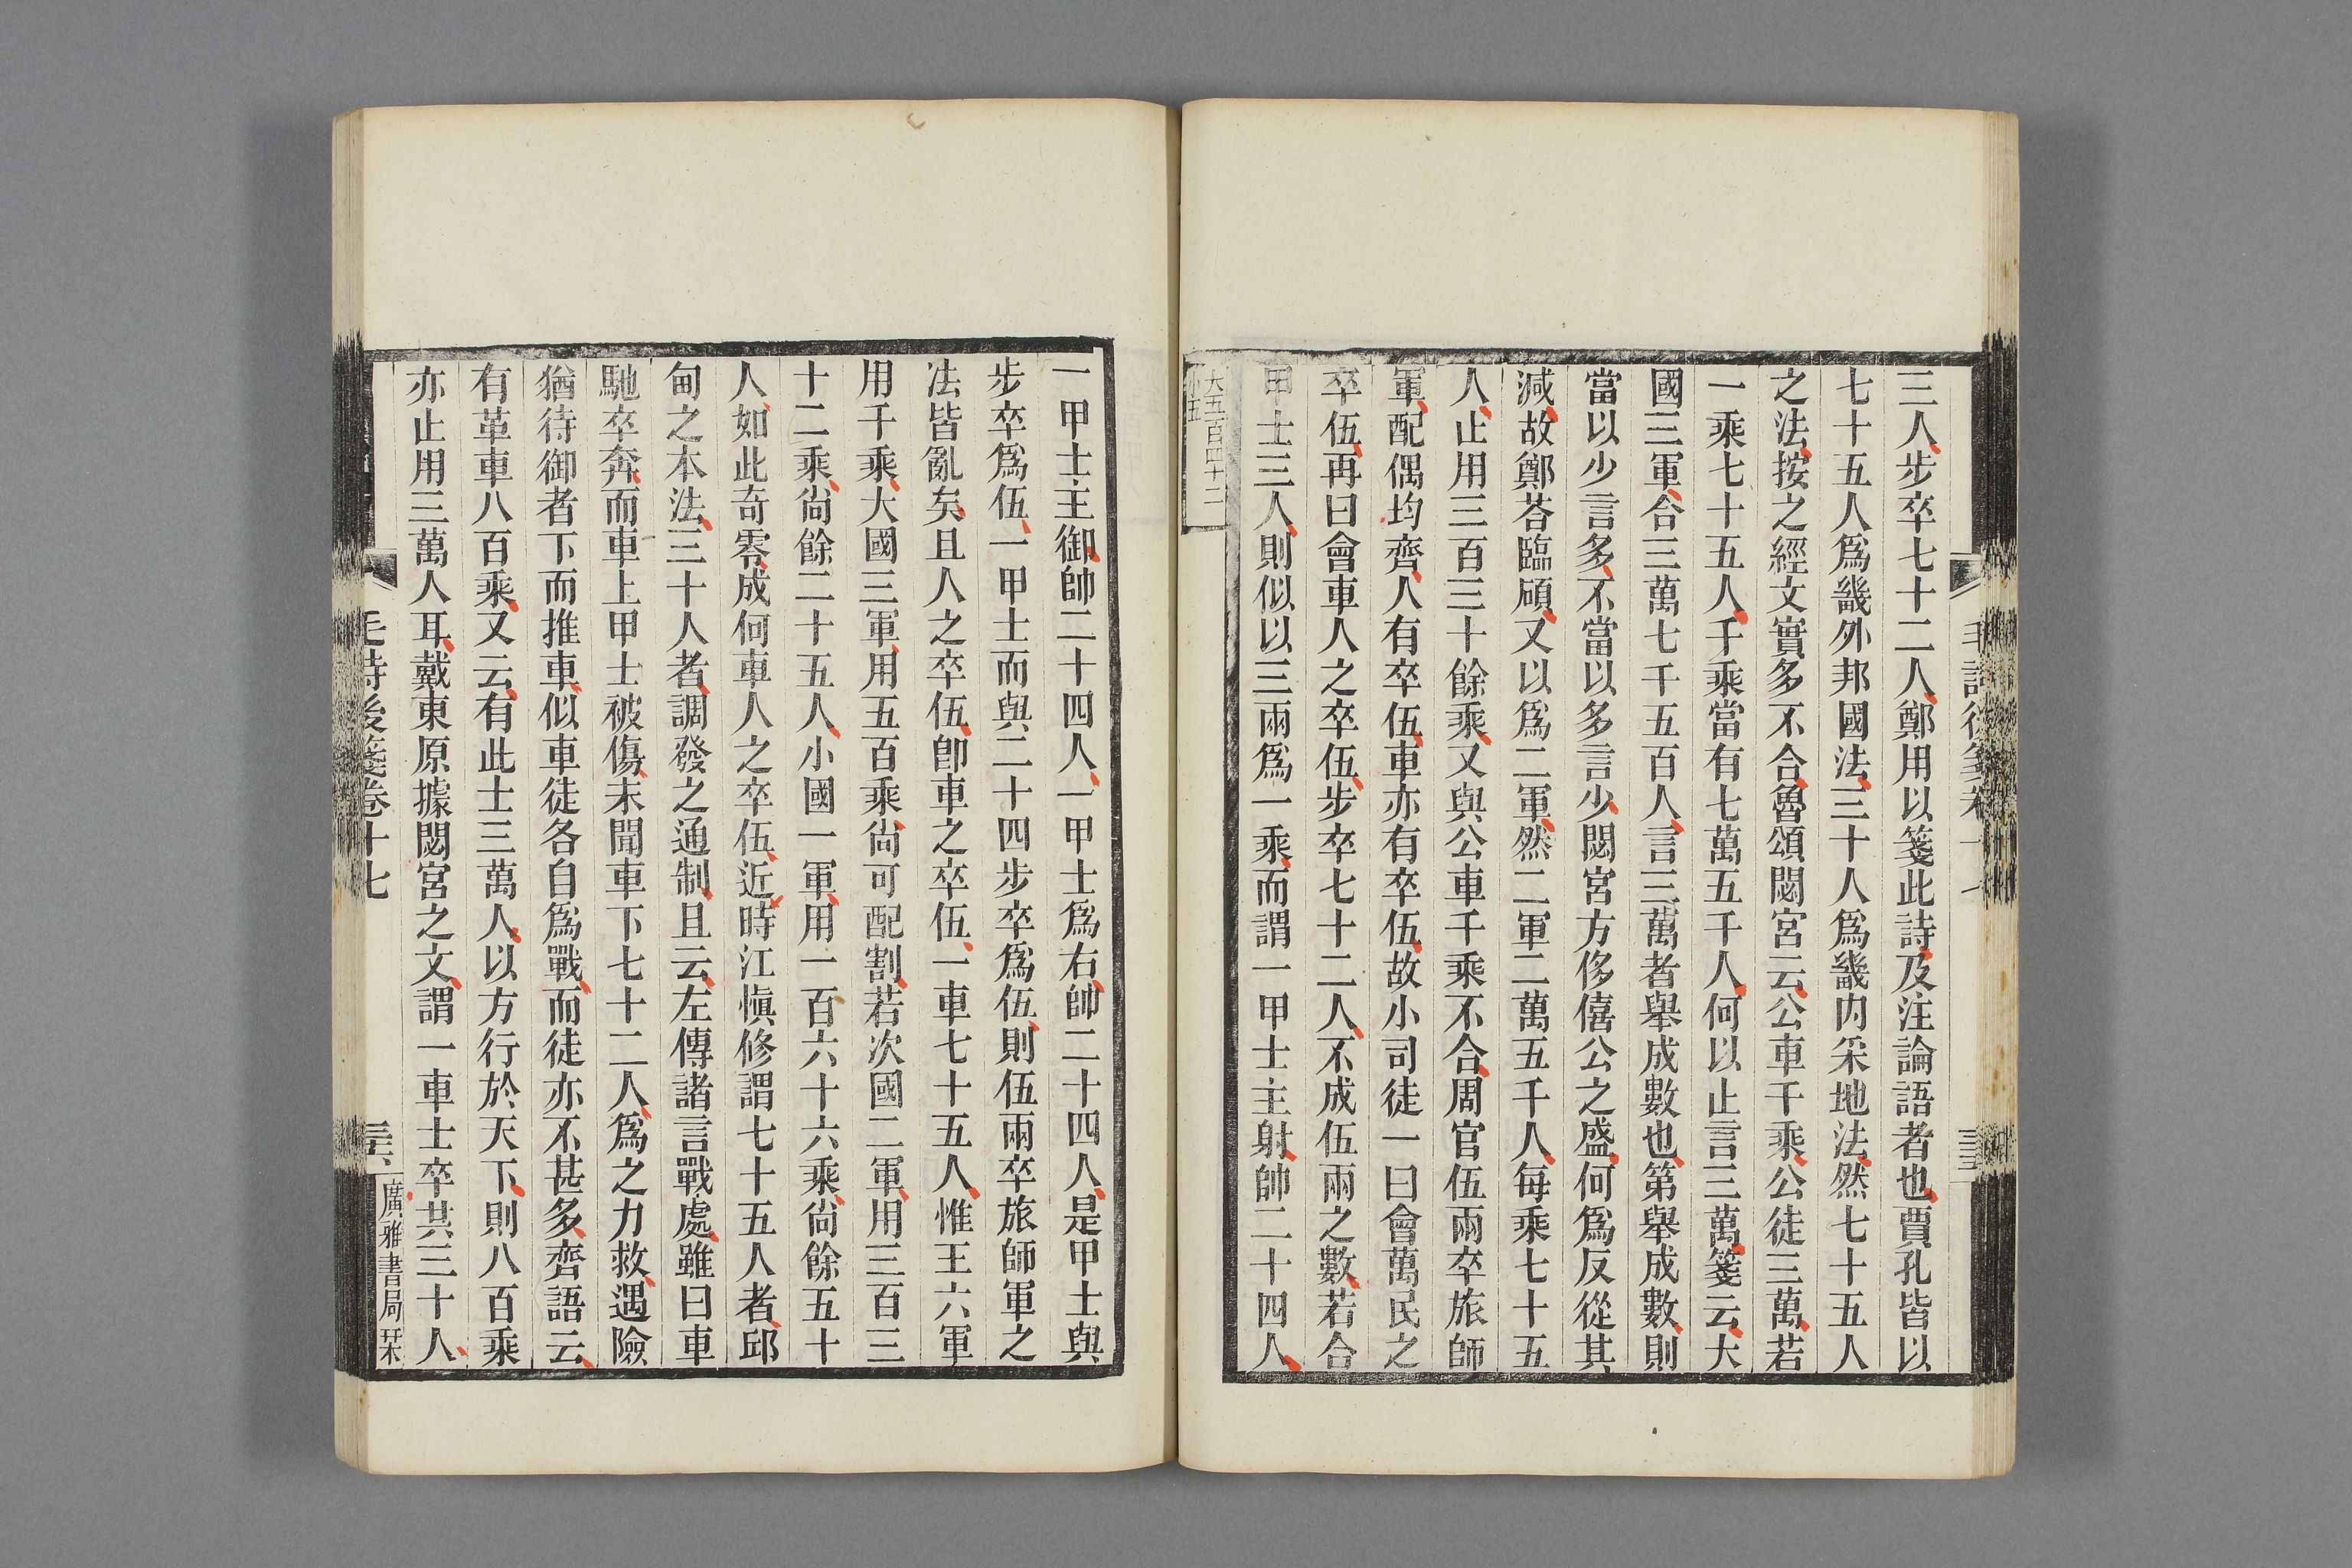 三人步卒七十二人鄭用以箋此詩及注論語者也賈孔皆以
七十五人爲畿外邦國法三十人爲畿内采地法然七十五人
之法按之經文實多不合魯頌閟宮云公車千乘公徒三萬若
一乘七十五人千乘當有七萬五千人何以止言三萬箋云大
國三軍合三萬七千五百人言三萬者舉成數也第舉成數則
當以少言多不當以多言少閟宮方侈僖公之盛何爲反從其
減故鄭荅臨碩又以爲二軍然二軍二萬五千人每乘七十五
人止用三百三十餘乘又與公車千乘不合周官伍兩卒旅師
軍配偶均齊人有卒伍車亦有卒伍故小司徒一曰會萬民之
卒伍再曰會車人之卒伍步卒七十二人不成伍兩之數若合
甲士三人則似以三兩爲一乘而謂一甲士主射帥二十四人
大五百四十二
小五
一甲士主御帥二十四人一甲士爲右帥二十四人是甲士與
步卒爲伍一甲士而與二十四步卒爲伍則伍兩卒旅師軍之
法皆亂矣且人之卒伍卽車之卒伍一車七十五人惟王六軍
用千乘大國三軍用五百乘尙可配割若次國二軍用三百三
十二乘尙餘二十五人小國一軍用一百六十六乘尙餘五十
人如此奇零成何車人之卒伍近時江愼修謂七十五人者邱
甸之本法三十人者調發之通制且云左傳諸言戰處雖曰車
馳卒奔而車上甲士被傷未聞車下七十二人爲之力救遇險
猶待御者下而推車似車徒各自爲戰而徒亦不甚多齊語云
有革車八百乘又云有此士三萬人以方行於天下則八百乘
亦止用三萬人耳戴東原據閟宮之文謂一車士卒共三十人
毛詩後箋卷十七
三六
廣雅書局栞